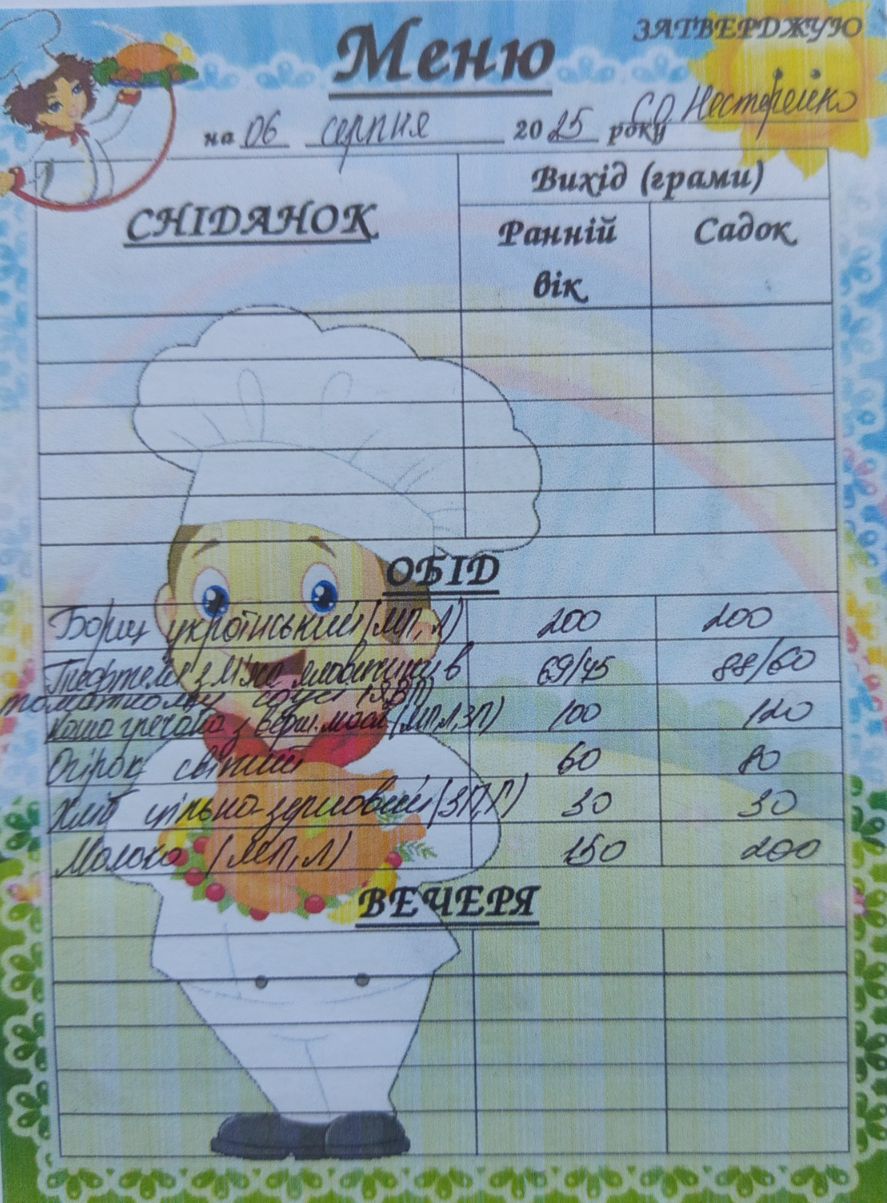 Меню
ЗАТВЕРДЖУЮ
на 06 серпня 2025 року Нестеренко
Вихід (грами)
СНІДАНОК
Ранній вік
Садок
ОБІД
Борщ український (МП, Л) 200 200
з м'яса яловичини в 69/45 88/60
томатному соусі
Каша гречана з верш. масл (МП, Л, ЗП) 100 120
Огірок свіжий 60 80
Хліб цільно-зерновий (ЗП, Г) 30 30
Молоко (МП, Л) 150 200
ВЕЧЕРЯ